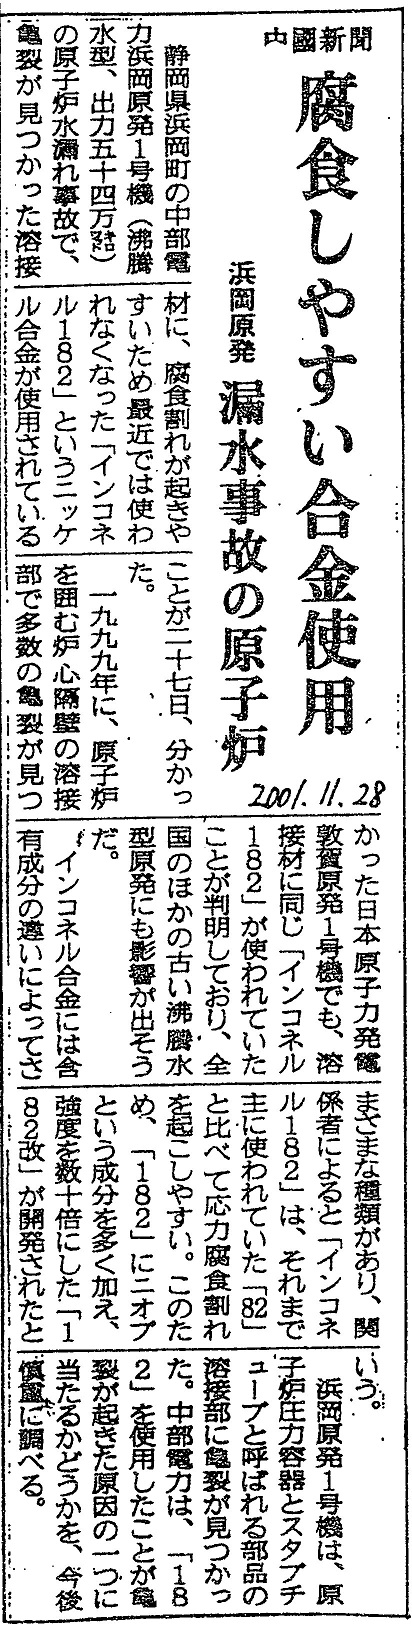 中國新聞
腐食しやすい合金使用
浜岡原発
漏水事故の原子炉
2001.11.28
静岡県浜岡町の中部電
力浜岡原発1号機（沸騰
水型、出力五十四万㌔㍗）
の原子炉水漏れ事故で、
亀裂が見つかった溶接
材に、腐食割れが起きや
すいため最近では使わ
れなくなった「インコネ
ル182」というニッケ
ル合金が使用されている
ことが二十七日、分かっ
た。
一九九九年に、原子炉
を囲む炉心隔壁の溶接
部で多数の亀裂が見つ
かった日本原子力発電
敦賀原発1号機でも、溶
接材に同じ「インコネル
182」が使われていた
ことが判明しており、全
国のほかの古い沸騰水
型原発にも影響が出そう
だ。
インコネル合金には含
有成分の違いによってさ
まざまな種類があり、関
係者によると「インコネ
ル182」は、それまで
主に使われていた「82」
と比べて応力腐食割れ
を起こしやすい。このた
め、「182」にニオブ
という成分を多く加え、
強度を数十倍にした「1
82改」が開発されたと
いう。
浜岡原発1号機は、原
子炉圧力容器とスタブチ
ューブと呼ばれる部品の
溶接部に亀裂が見つかっ
た。中部電力は、「18
2」を使用したことが亀
裂が起きた原因の一つに
当たるかどうかを、今後
慎重に調べる。